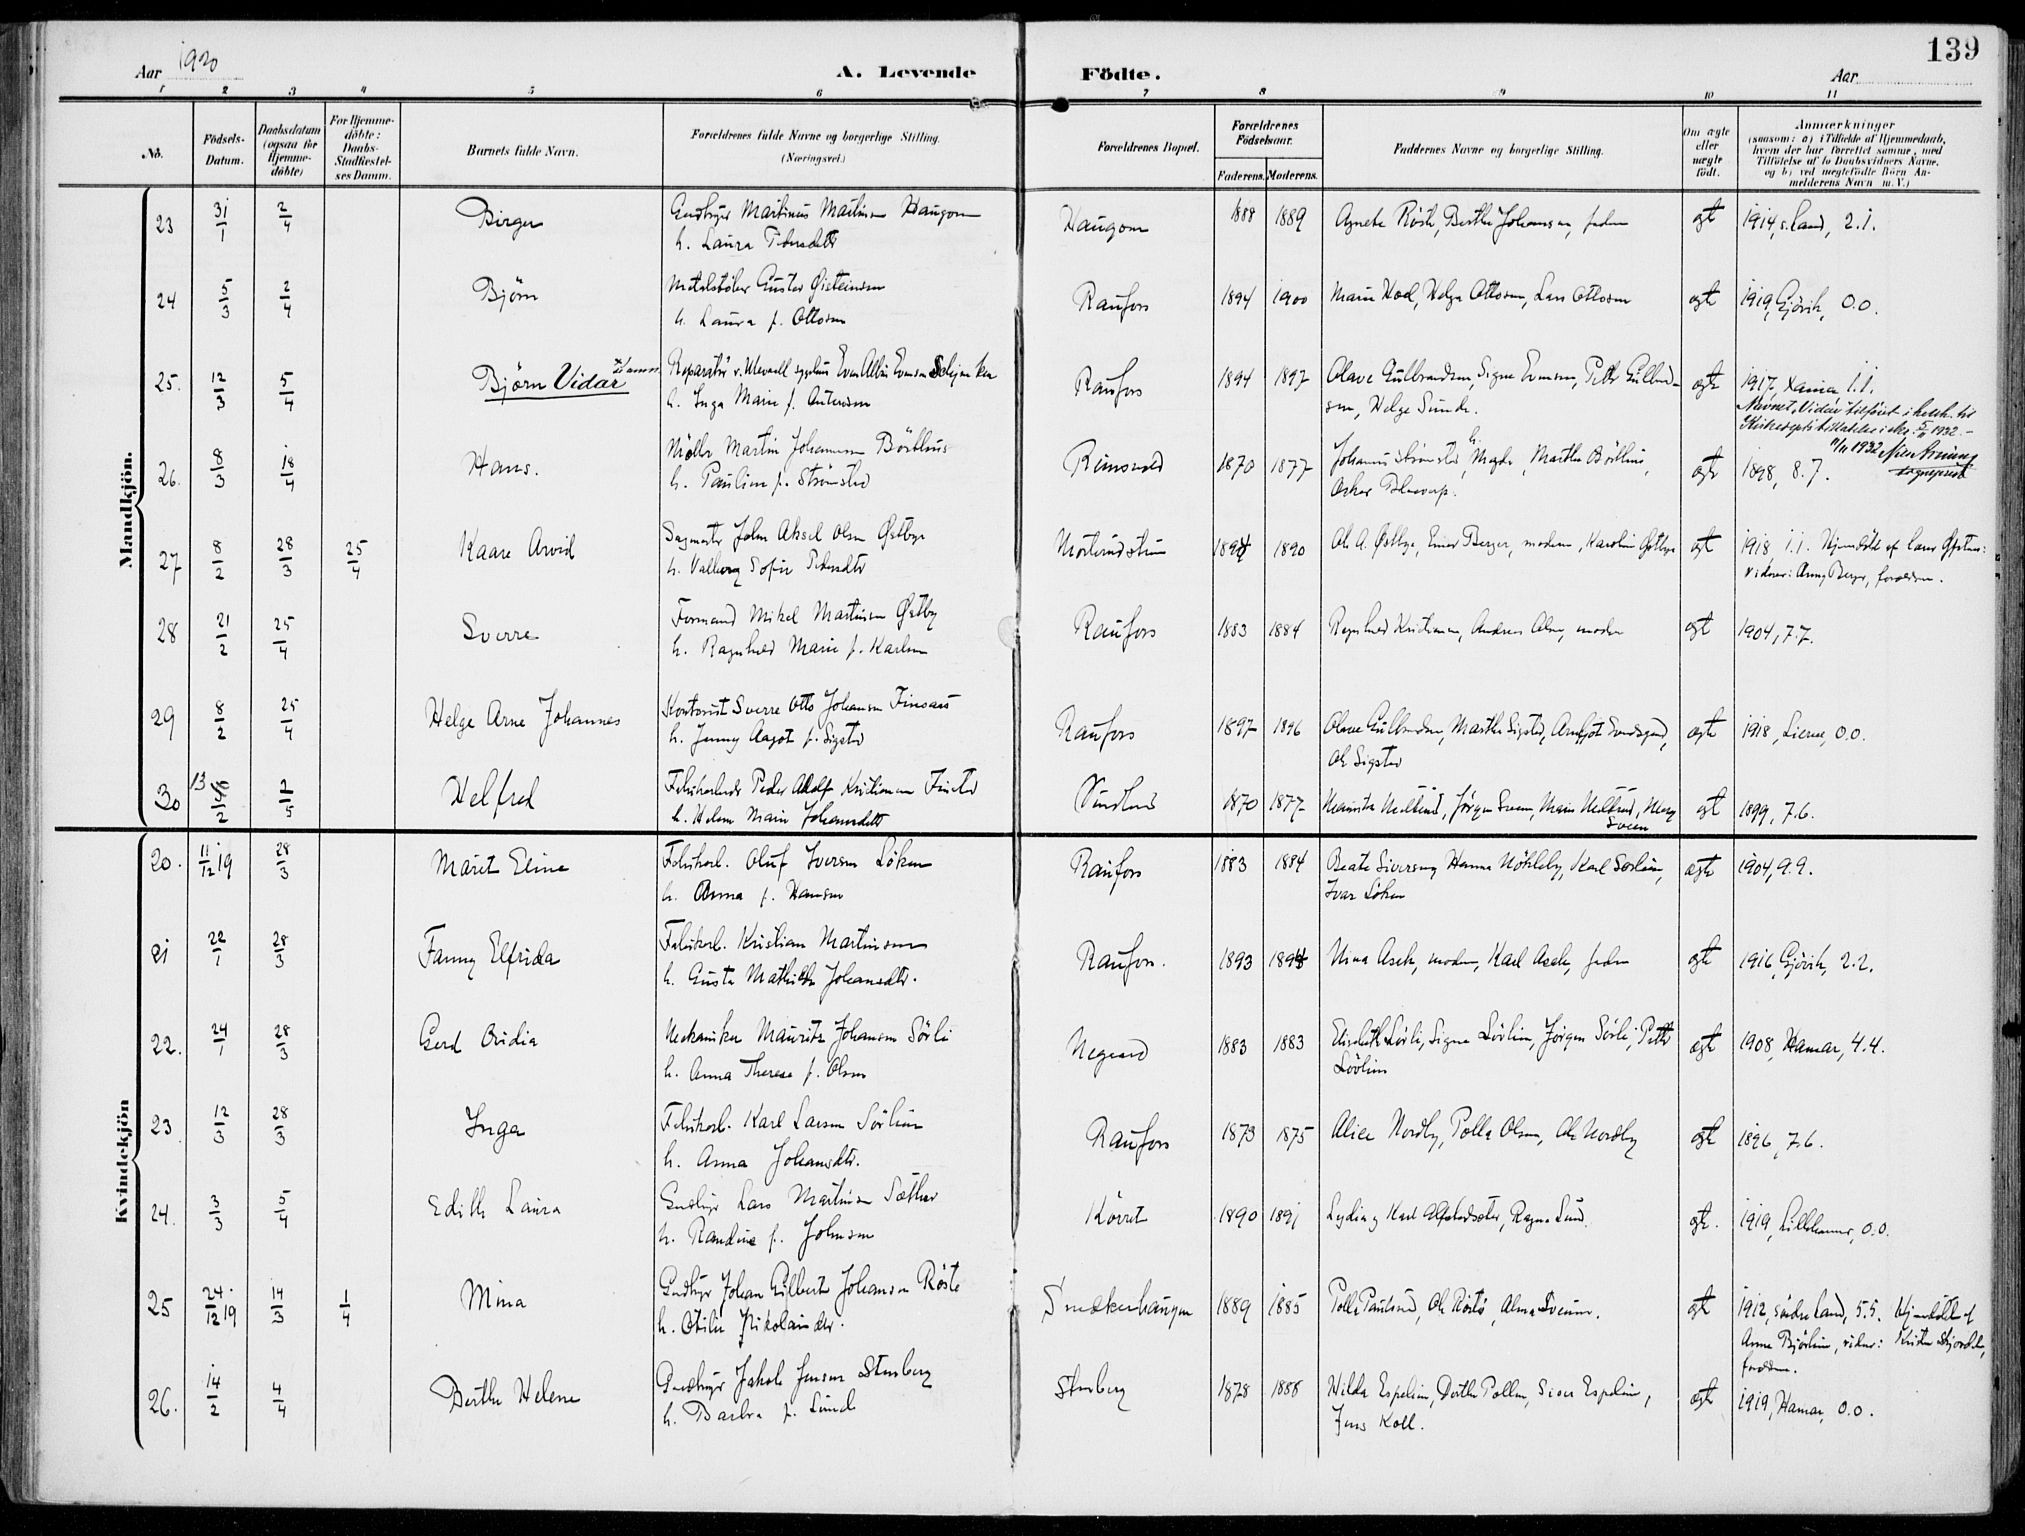 Aar 1920
A. Levende Födte.
Aar
139
1 2 3 4 5 6 7 8 9 10 11
No.
Födsels-Datum.
Daabsdatum (ogsaa for Hjemme-döbte)
For Hjemme-döbte: Daabs-Stadfæstel-ses Datum.
Barnets fulde Navn.
Forældrenes fulde Navne og borgerlige Stilling. (Næringsvei.)
Forældrenes Bopæl.
Forældrenes Födselsaar.
Faderens. Moderens.
Faddernes Navne og borgerlige Stilling.
Om ægte eller uægte födt.
Anmærkninger
(saasom: a) i Tilfælde af Hjemmedaab,
hvem der har forrettet samme, med
Tilföielse af to Daabsvidners Navne,
og b) ved uægtefödte Börn An-
melderens Navn m. V.)
Mandkjön.
23 31/1 2/4 Birger Gaardbruger Martinus Martinsen Haugom Haugom 1888 1889 Agnethe Röste, Berthe Johansen, faderen ægte 1914, s. Land, 2.1.
h. Laura Pedersdtr
24 5/3 2/4 Björn Gustav Øisteinsen Raufoss 1894 1900 Marie Hoel, Helga Ottosen, Lars Ottosen ægte 1919, Gjövik, 0.0.
h. Laura f. Ottosen
25. 12/3 5/4 Björn Vidar Reparatör Even Albin Evensen Raufoss 1894 1897 Olave Gulbrandsen, Signe Evensen, Petter Gulbrand- ægte 1917, Xania, 1.1.
h. Inga Marie f. Antonsen
sen, Helge Sunde.
Navnet "Vidar" tilföiet
5/11 1932.
11/11 1932
sogneprest
26. 8/3 18/4 Hans. Möller Martin Johannesen Börthus Rimsveld 1870 1877 Johannes Strömstad, Magda, Marthe Börthus, ægte 1898, 8.7.
h. Pauline f. Strömstad
Oskar
27 8/2 28/3 25/4 Kaare Arvid Sagmester John Aksel Olsen Østbye 1894 1890 Ole A. Østbye, Einar Berger, moderen, Karoline Østbye ægte 1918 1.1. Hjemdöbt af Lars
h. Valborg Sofie Pedersdtr
vidner: Anny Berger, forældrene.
28 21/2 25/4 Sverre Formand Mikel Martinsen Østby Raufoss 1883 1884 Ragnhild Kristiansen, Andreas Alm, moderen ægte 1904, 7.7.
h. Ragnhild Marie f. Karlsen
29 8/2 25/4 Helge Arne Johannes Kontorist Sverre Otto Johansen Raufoss 1897 1896 Olave Gulbrandsen, Marthe Sigstad, ægte 1918, Lierne, 0.0.
h. Jenny Aagot f. Sigstad
Ole Sigstad
30 13/2 2/5 Helfred Fabrikarbeider Peder Adolf Kristiansen 1870 1877 Jörgen Sveen, Marie ægte 1899, 7.6.
h. Helene Marie Johannesdtr
Sveen
Kvindekjön
20. 11/12 19 28/3 Marit Eline Fabrikarb. Oluf Iversen Löken Raufoss 1883 1884 Beate Siversen, Hanna Nökleby, Karl ægte 1904, 9.9.
h. Anna f. Hansen
Ivar Löken
21 22/1 28/3 Fanny Elfrida Fabrikarb. Kristian Martinsen Raufoss. 1893 1894 Nina Asek, moderen, Karl Asek, faderen ægte 1916, Gjövik, 2.2.
h. Gusta Mathilde Johansdtr.
22. 24/1 28/3 Gerd Ovidia Mekaniker Mauritz Johansen Sörli Nygaard 1883 1883 Elisabeth Sörli, Signe Lövlien, Jörgen Sörli, Petter ægte 1908, Hamar, 4.4.
h. Anna Therese f. Olsen
Lövlien
23 12/3 28/3 Inga Fabrikarb. Karl Larsen Sörlien Raufoss 1873 1875 Alice Nordby, Polla Olsen, Ole Nordby ægte 1896, 7.6.
h. Anna Johansdtr.
24. 3/3 5/4 Edith Laura Gaardbruger Lars Martinsen Sæther Körret 1890 1891 Lydia og Karl Ragna Lund. ægte. 1919, Lillehammer, 0.0.
h. Randine f. Johnsen
25 24/12 19 14/3 1/4 Mina Gaardbruger Johan Gilbert Johansen Röste Smækerhaugen 1889 1885 Polla Paulsrud, Ole Röste, Alma ægte 1912, söndre Land, 5.5. Hjemdöbt af
h. Otilie Nikolaisdtr.
Anne Björlien, vidner:
forældrene.
26. 14/2 4/4 Berthe Helene Gaardbruger Jakob Jensen Stenberg Stenberg 1878 1888 Hilda Espelien, Dorthe Pollen, Siver Espelien, ægte 1919, Hamar, 0.0.
h. Barbra f. Lund
Jens Koll.